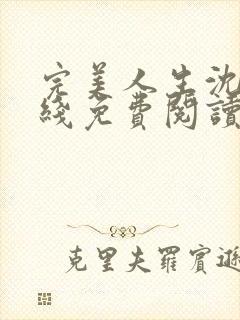 完美人生沈
綫免費閱讀
克里夫羅賓遜